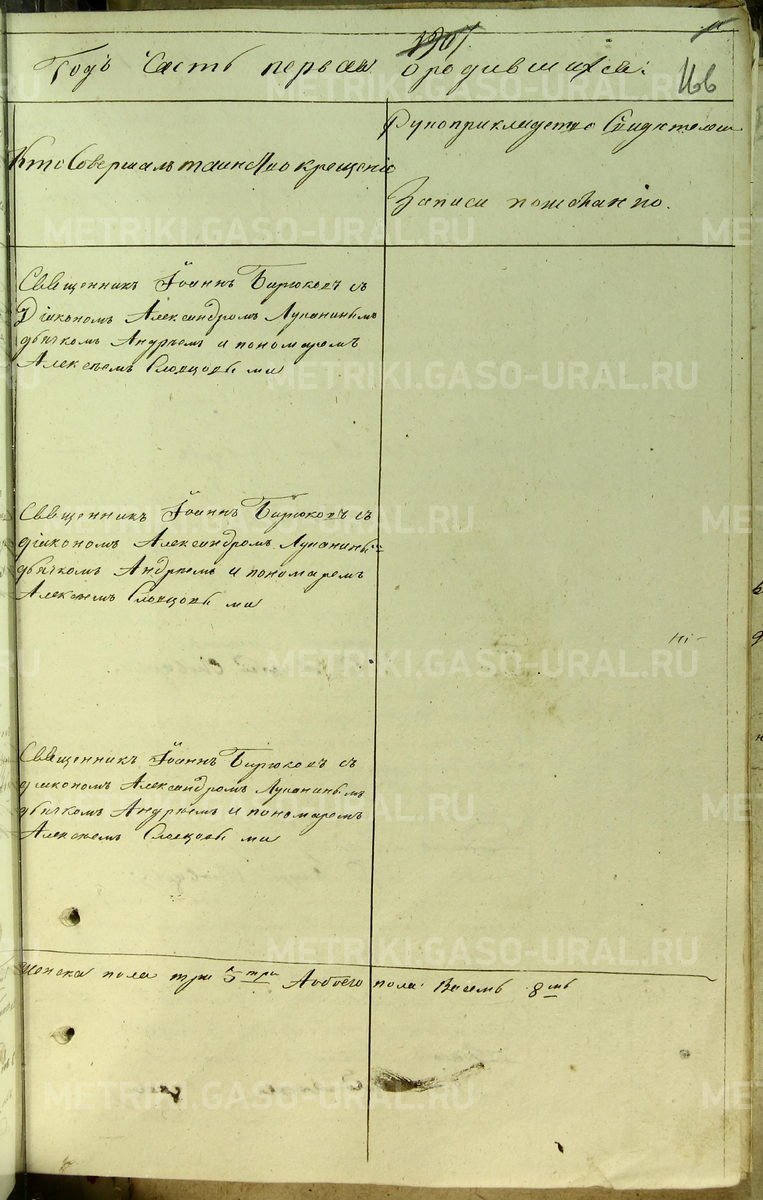 1901
Годъ Часть первая ородившихся:
166
Кто Совершалъ таинство крещенію
Рукоприкладство Свидѣтелей
Записи пожеланію.
Священникъ Іоаннъ Бирюковъ съ
Діакономъ Александромъ Лупанинымъ
дьячкомъ Андреемъ и пономаремъ
Алексѣемъ Словцовы ми
Священникъ Іоаннъ Бирюковъ съ
діакономъ Александромъ Лупанины=
дьячкомъ Андреемъ и пономаремъ
Алексѣемъ Словцовы ми
Священникъ Іоаннъ Бирюковъ съ
діакономъ Александромъ Лупанинымъ
дьячкомъ Андреемъ и пономаремъ
Алексѣемъ Словцовы ми
Женска пола три три Аобоего пола: Васемь 8мь
METRIKI.GASO-URAL.RU